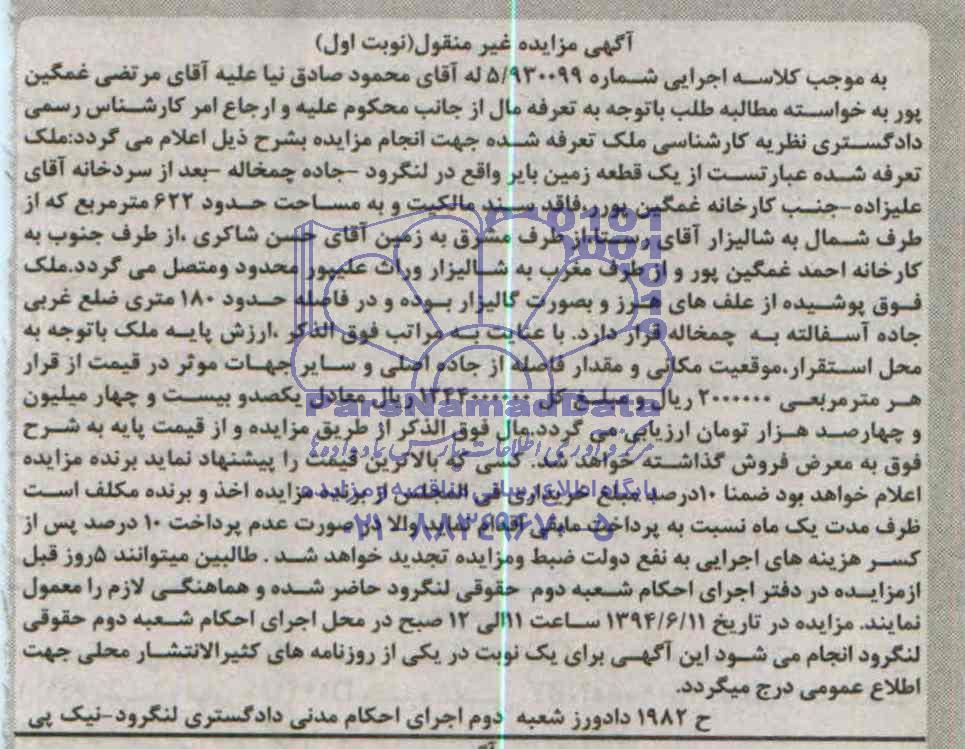 آگهی مزایده غیر منقول(نوبت اول)
به موجب کلاسه اجرایی شماره ۵/۹۳۰۰۹۹ له آقای محمود صادق نیا علیه آقای مرتضی غمگین
پور به خواسته مطالبه طلب باتوجه به تعرفه مال از جانب محکوم علیه و ارجاع امر کارشناس رسمی
دادگستری نظریه کارشناسی ملک تعرفه شده جهت انجام مزایده بشرح ذیل اعلام می گردد:ملک
تعرفه شده عبارتست از یک قطعه زمین بایر واقع در لنگرود -جاده چمخاله -بعد از سردخانه آقای
علیزاده-جنب کارخانه غمگین پور،فاقد سند مالکیت و به مساحت حدود ۶۲۲ مترمربع که از
طرف شمال به شالیزار آقای رستا،از طرف مشرق به زمین آقای حسن شاکری ،از طرف جنوب به
کارخانه احمد غمگین پور و از طرف مغرب به شالیزار وراث علیپور محدود ومتصل می گردد.ملک
فوق پوشیده از علف های هرز و بصورت گالیزار بوده و در فاصله حدود ۱۸۰ متری ضلع غربی
جاده آسفالته به چمخاله قرار دارد. با عنایت به مراتب فوق الذکر ،ارزش پایه ملک باتوجه به
محل استقرار،موقعیت مکانی و مقدار فاصله از جاده اصلی و سایر جهات موثر در قیمت از قرار
هر مترمربعی ۲۰۰۰۰۰۰ ریال و مبلغ کل ۱۲۴۴۰۰۰۰۰۰ ریال معادل یکصدو بیست و چهار میلیون
و چهارصد هزار تومان ارزیابی می گردد.مال فوق الذکر از طریق مزایده و از قیمت پایه به شرح
فوق به معرض فروش گذاشته خواهد شد. کسی که بالاترین قیمت را پیشنهاد نماید برنده مزایده
اعلام خواهد بود ضمنا ۱۰درصد مبلغ خریداری فی المجلس از برنده مزایده اخذ و برنده مکلف است
ظرف مدت یک ماه نسبت به پرداخت مابقی اقدام نماید والا در صورت عدم پرداخت ۱۰ درصد پس از
کسر هزینه های اجرایی به نفع دولت ضبط ومزایده تجدید خواهد شد . طالبین میتوانند ۵روز قبل
ازمزایده در دفتر اجرای احکام شعبه دوم حقوقی لنگرود حاضر شده و هماهنگی لازم را معمول
نمایند. مزایده در تاریخ ۱۳۹۴/۶/۱۱ ساعت ۱۱الی ۱۲ صبح در محل اجرای احکام شعبه دوم حقوقی
لنگرود انجام می شود این آگهی برای یک نوبت در یکی از روزنامه های کثیرالانتشار محلی جهت
اطلاع عمومی درج میگردد.
ح ۱۹۸۲ دادورز شعبه دوم اجرای احکام مدنی دادگستری لنگرود-نیک پی
ParsNamadData
پایگاه اطلاع رسانی مناقصه و مزایده
۰۲۱-۸۸۳۴۹۶۷۰-۵